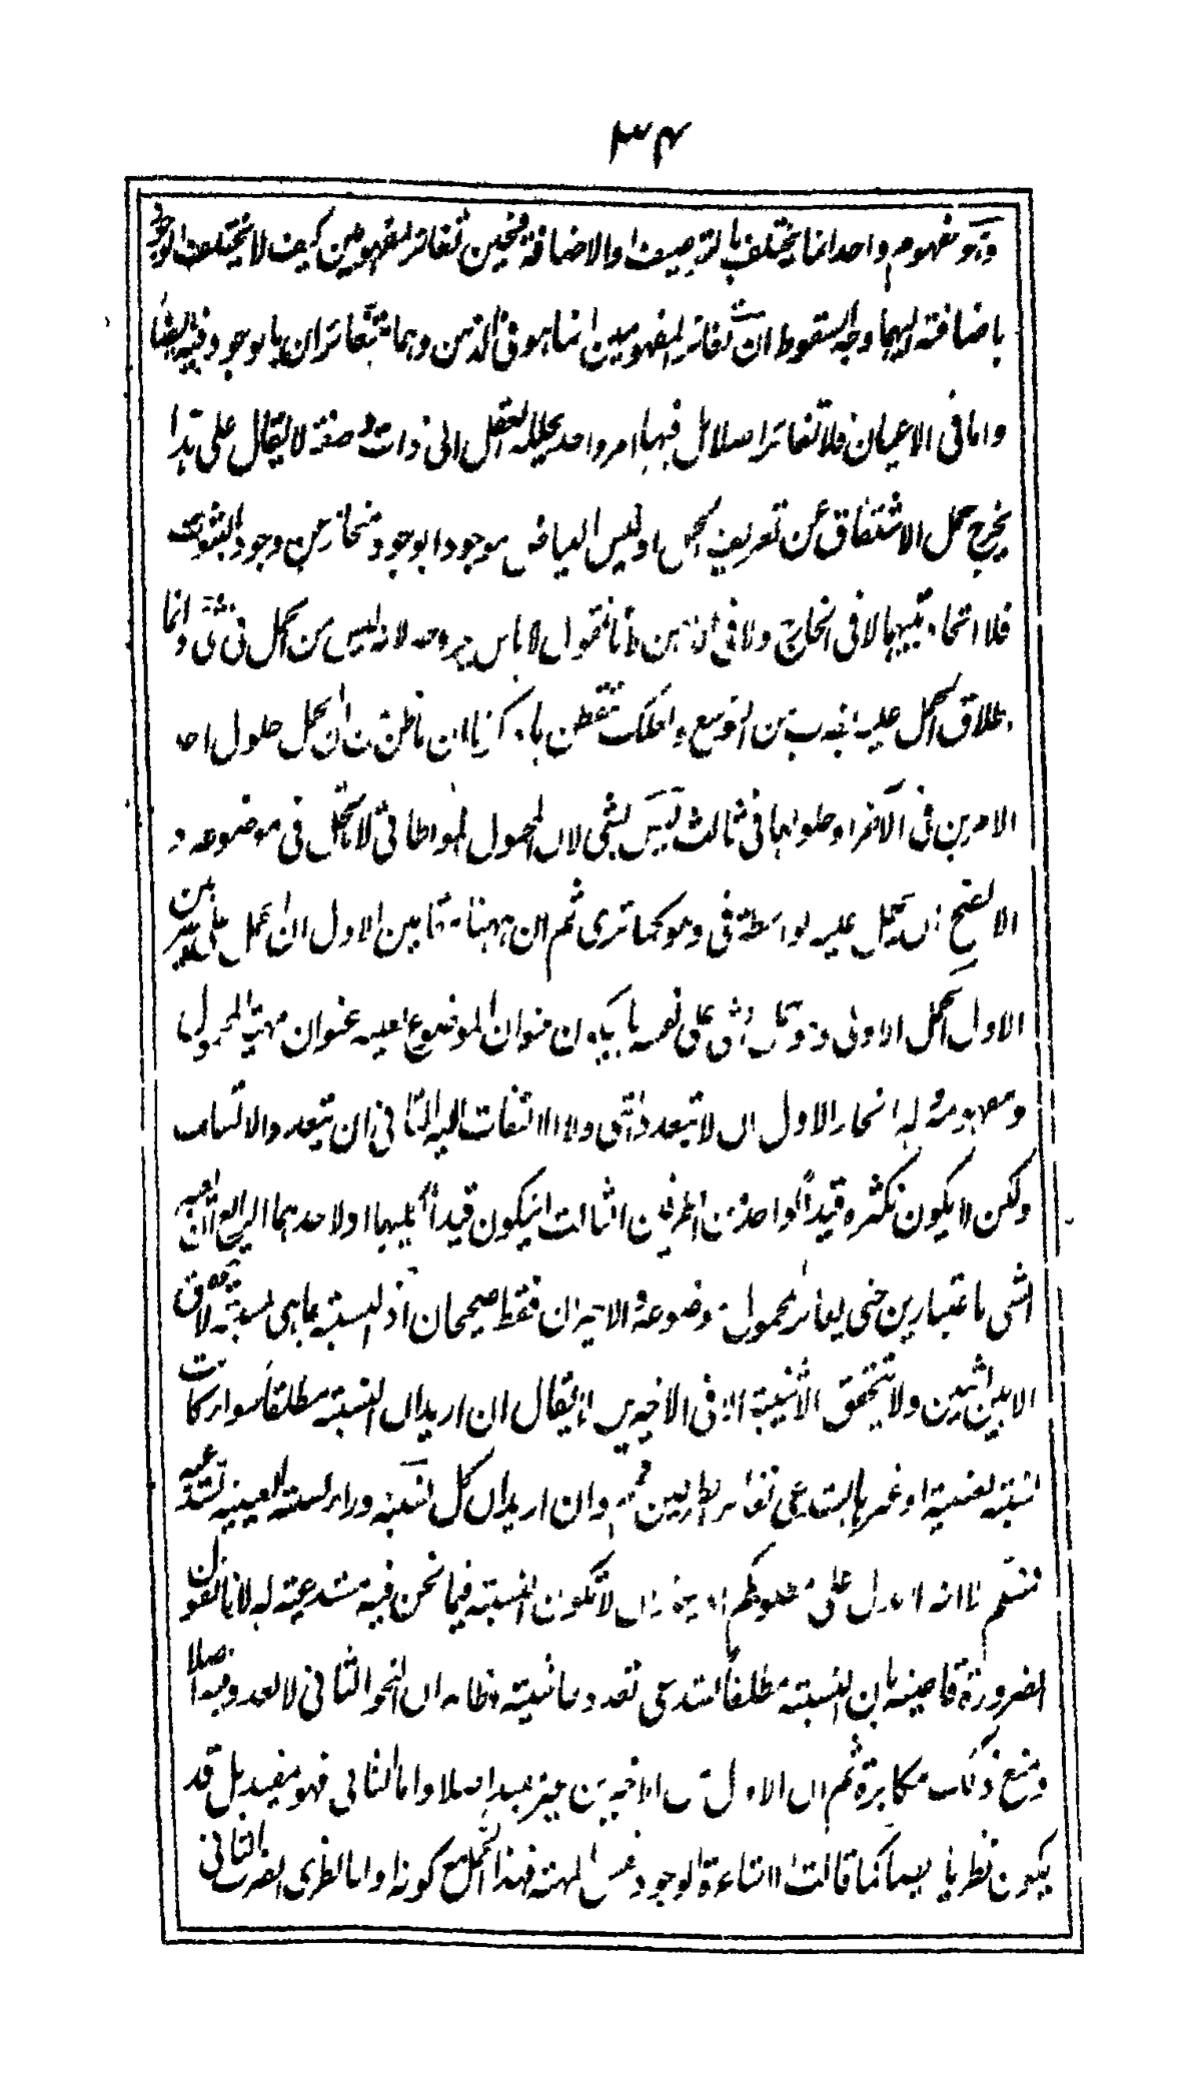 ٣٤
وهو مفهوم واحد انما يختلف بالتوصيف او الاضافة فحين تغاير المفهومين كيف لا يختلف الوجود
باضافته اليهما وجه السقوط ان تغاير المفهومين انما هو في الذهن وهما متغايران بالوجود فيه ايضا
واما في الاعيان فلا تغاير اصلا بل فيها امر واحد يحلله العقل الى ذات وصفة لا يقال على هذا
يخرج حمل الاشتقاق عن تعريف الحمل اوليس البياض موجودا بوجود منحاز عن وجود الثوب
فلا اتحاد بينهما لا في الخارج ولا في الذهن لانا نقول لا باس بخروجه لانه ليس من الحمل في شئ وانما
اطلاق الحمل عليه بضرب من التوسع ولعلك تتفطن بما ذكرنا ان ما ظن من ان الحمل حلول احد
الامرين في الآخر او حلولهما في ثالث ليس بشئ لان المحمول المواطاتي لا يحل في موضوعه و
الا لصح ان يحمل عليه بواسطة في وهو كما ترى ثم ان ههنا مقامين الاول ان الحمل على قسمين
الاول الحمل الاولى وهو حمل الشئ على نفسه بان يكون عنوان الموضوع بعينه عنوان مهية المحمول
ومفهومه وله انحاء الاول ان لا يتعدد الشئ ولا الالتفات اليه الثاني ان يتعدد الالتفات
ولكن لا يكون تكثره قيدا لواحد من الطرفين الثالث ان يكون قيدا لكليهما او لاحدهما الرابع ان يؤخذ
الشئ باعتبارين حتى يغاير المحمول موضوعه والاخيران فقط صحيحان اذ النسبة بما هي نسبة لا تتحقق
الا بين اثنين ولا تتحقق الاثنينية الا في الاخيرين لا يقال ان اريد ان النسبة مطلقا سواء كانت
نسبة نفسية او غيرها يستدعي تغاير الطرفين فمم وان اريد ان كل نسبة وراء النسبة العينية تستدعيه
فمسلم الا انه لا يدل على مطلوبكم اذ يجوز ان لا تكون النسبة فيما نحن فيه مستدعية له لانا نقول
الضرورة قاضية بان النسبة مطلقا تستدعي تعدد حاشيتيه وظاهر ان النحو الثاني لا تعدد فيه اصلا
ومنع ذلك مكابرة ثم ان الاول من الاخيرين غير مفيد اصلا واما الثاني فهو مفيد بل قد
يكون نظريا ايضا كما قالت الاشاعرة الوجود نفس المهية فهذا الحمل مع كونه اوليا نظري الضرب الثاني